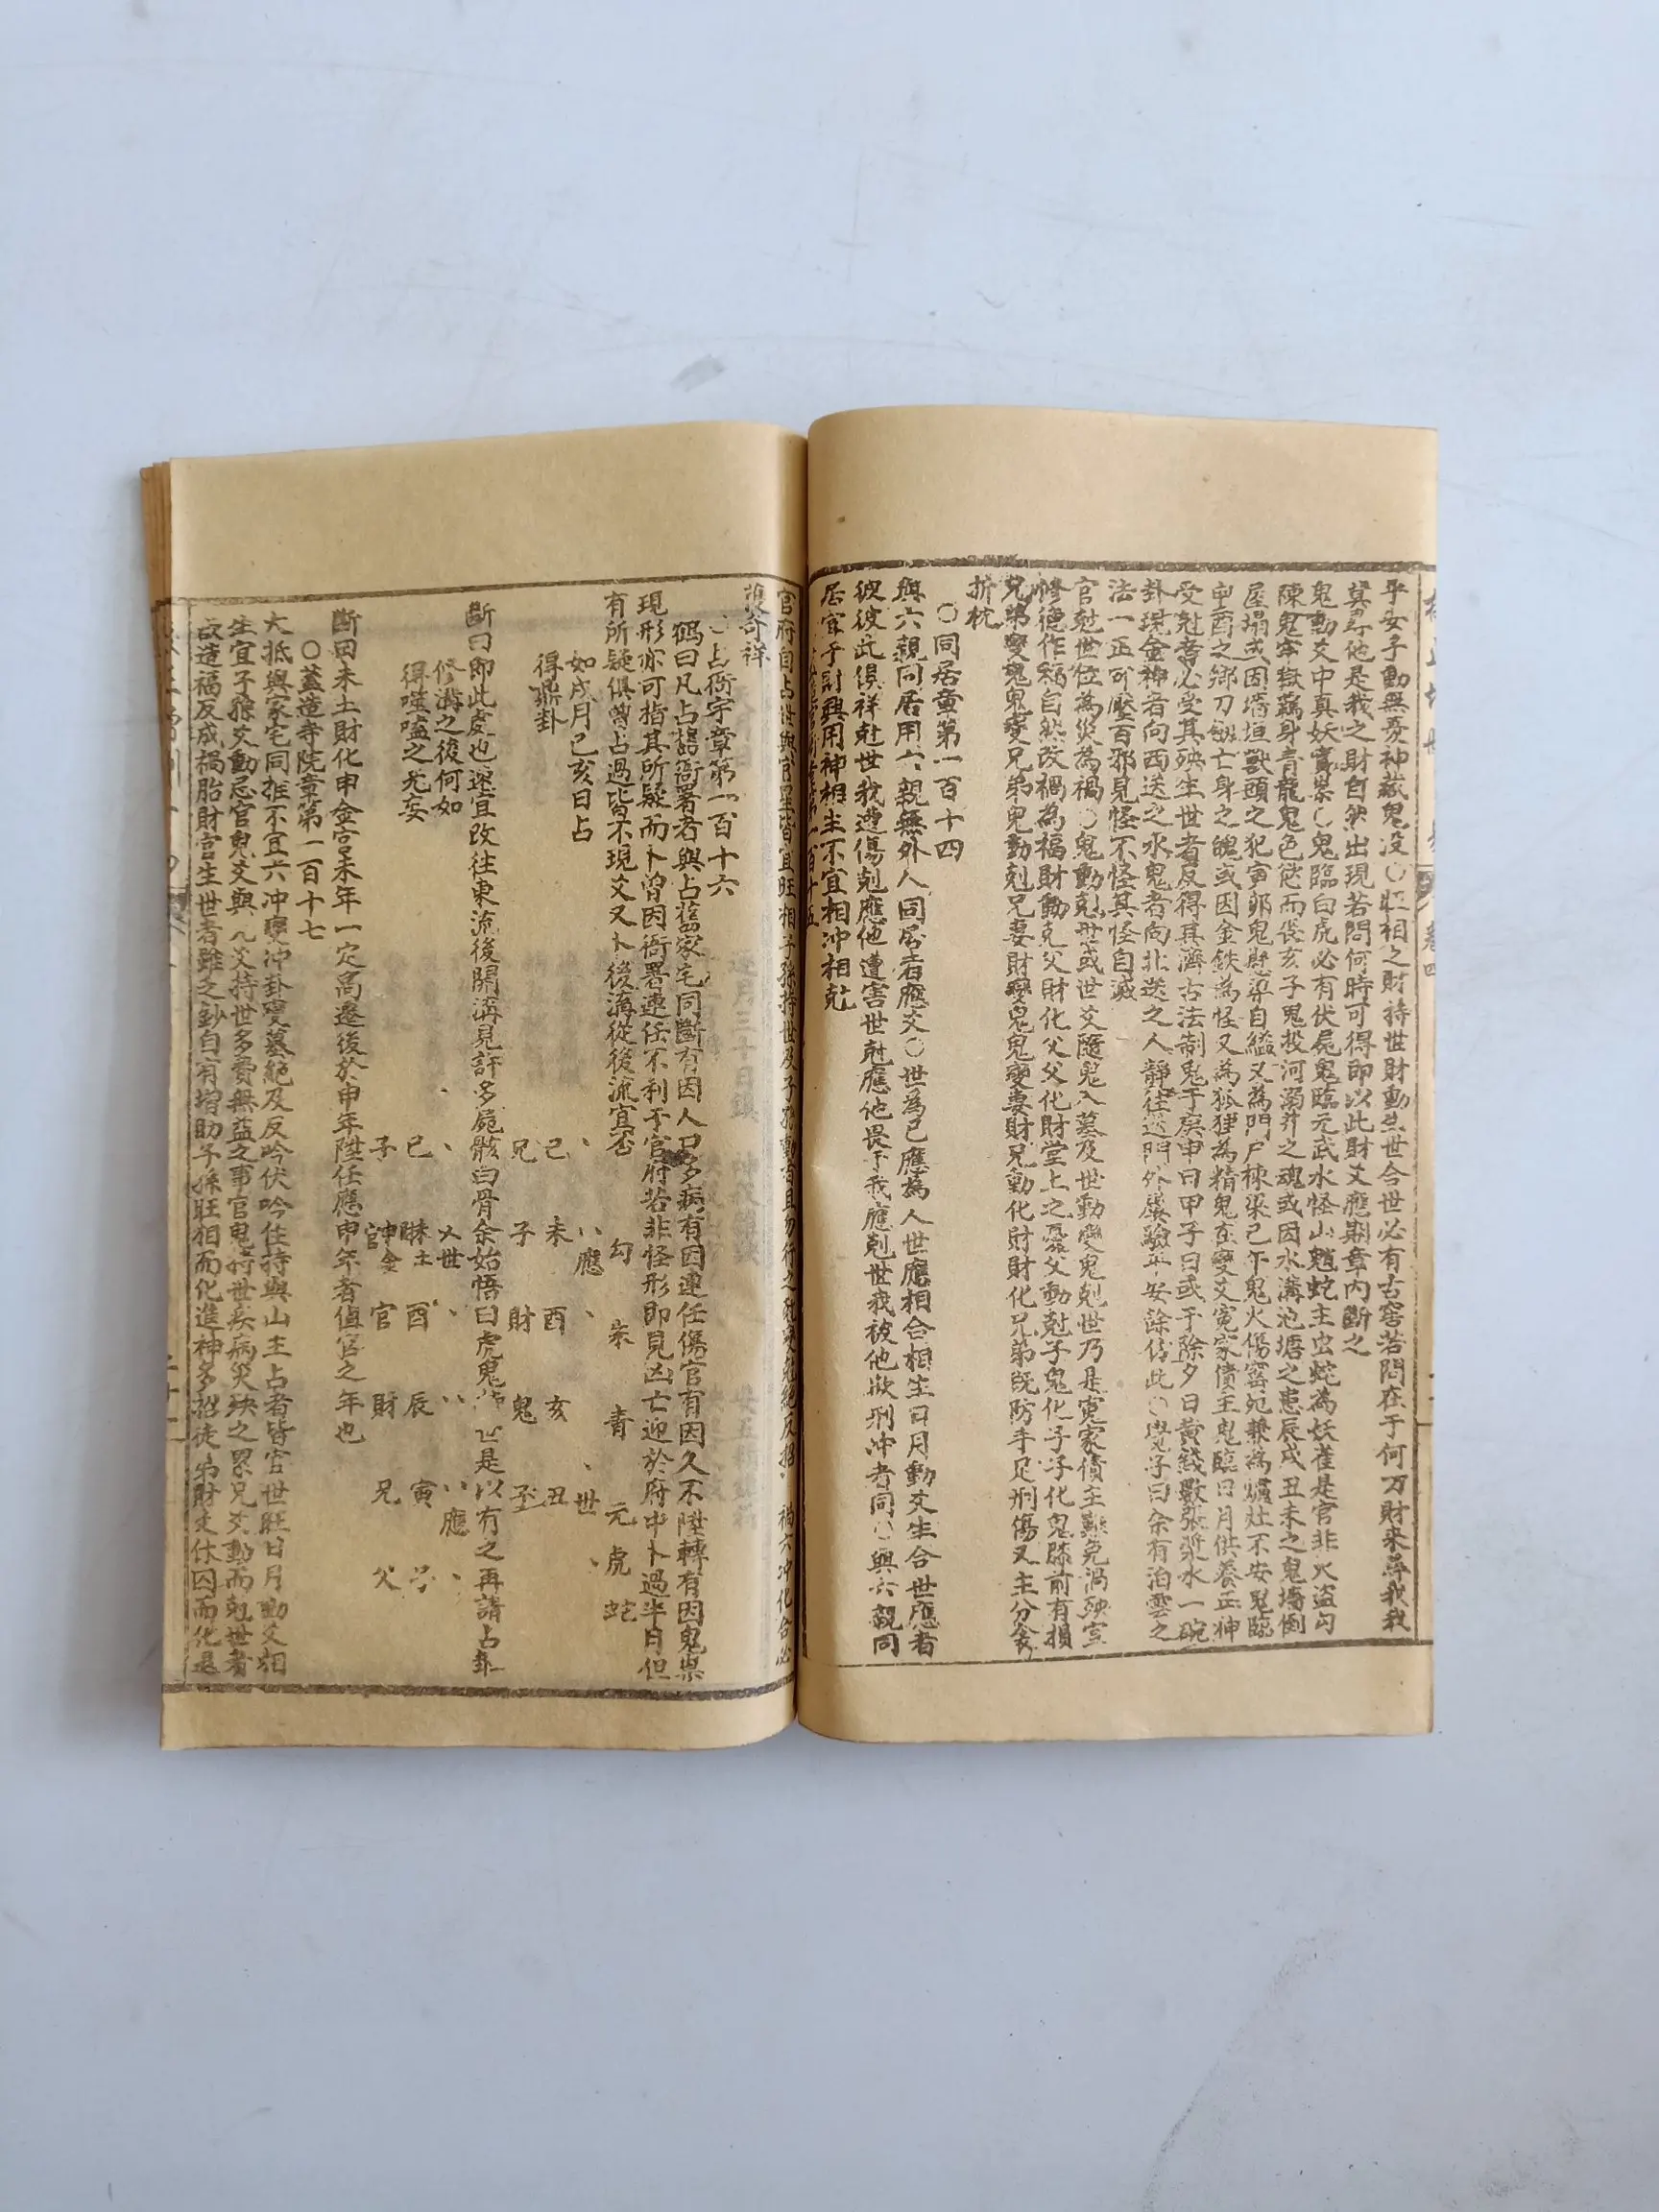 平安子動無憂神藏鬼没○旺相之財持世財動生世合世必有古窖若問在于何方財来尋我我
莫尋他是我之財自然出現若問何時可得即以此財爻應期章内斷之
鬼動爻中真妖實祟○鬼臨白虎必有伏屍鬼臨元武水怪山魈蛇主虫蛇為妖雀是官非火盜勾
陳鬼牢獄藏身青龍鬼色慾而喪亥子鬼投河溺井之魂或因水溝池塘之患辰戌丑未之鬼墻倒
屋塌或因墻垣獸頭之犯寅卯鬼懸梁自縊又為門戶棟梁巳午鬼火傷窖宛兼為爐灶不安鬼臨
申酉之鄉刀劍亡身之魄或因金鉄為怪又為狐狸為精鬼在變爻冤家債主鬼臨日月供養正神
受尅者必受其殃生世者反得其濟古法制鬼于庚申日甲子日或于除夕日黄錢數張漿水一碗
卦現金神者向西送之水鬼者向北送之人靜徃送門外屡驗平安餘倣此○覺子曰余有泊雲之
法一正可壓百邪見怪不怪其怪自滅
官尅世位為災為禍○鬼動尅世或世爻隨鬼入墓及世動變鬼尅世乃是冤家債主難免禍殃宜
修德作福自然改禍為福財動尅父財化父父化財堂上之憂父動尅子鬼化子子化鬼膝前有損
兄弟變鬼鬼變兄弟鬼動剋兄妻財變鬼鬼變妻財兄動化財財化兄弟既防手足刑傷又主分衾
折枕
○同居章第一百十四
與六親同居用六親無外人同居者應爻○世為己應為人世應相合相生日月動爻生合世應者
彼彼此俱祥尅世我遭傷剋應他遭害世尅應他畏于我應剋世我被他欺刑冲者同○與六親同
居官子財興用神相生不宜相沖相尅
官府自占世與官星皆宜旺相子孫持世及子孫動者且勿行之
獲奇祥
○占衙宇章第一百十六
鶴曰凡占舊衙署者與占舊家宅同斷有因人口多病有因連任傷官有因久不陞轉有因鬼祟
現形亦可指其所疑而卜曾因衙署連任不利于官府若非怪形即見凶亡迎於府中卜過半日但
有所疑俱曾占過皆不現爻又卜後溝從後流宜否 勾 朱 青 元 虎 蛇
如戌月己亥日占 、 、、應 、 、世 、
得鼎卦 己 未 酉 亥 丑
兄 子 財 鬼 子
斷曰即此處也速宜改徃東流後開溝見許多屍骸白骨余始悟曰虎鬼 世是以有之再請占卦
修溝之後何如 、 乂世 、 、、 、、應 、
得噬嗑之无妄 巳 未土 酉 辰 寅 子
子 申金 官 財 兄 父
斷曰未土財化申金官未年一定高遷後於申年陞任應申年者值官之年也
○蓋造寺院章第一百十七
大抵與家宅同推不宜六冲變冲卦變墓絶及反吟伏吟住持與山主占者皆宜世旺日月動爻相
生宜子孫爻動忌官鬼爻與兄爻持世多費無益之事官鬼持世疾病災殃之累兄爻動而尅世者
故造福反成禍胎財官生世者雖之鈔自有増助子孫旺相而化進神多招徒弟財爻休囚而化退